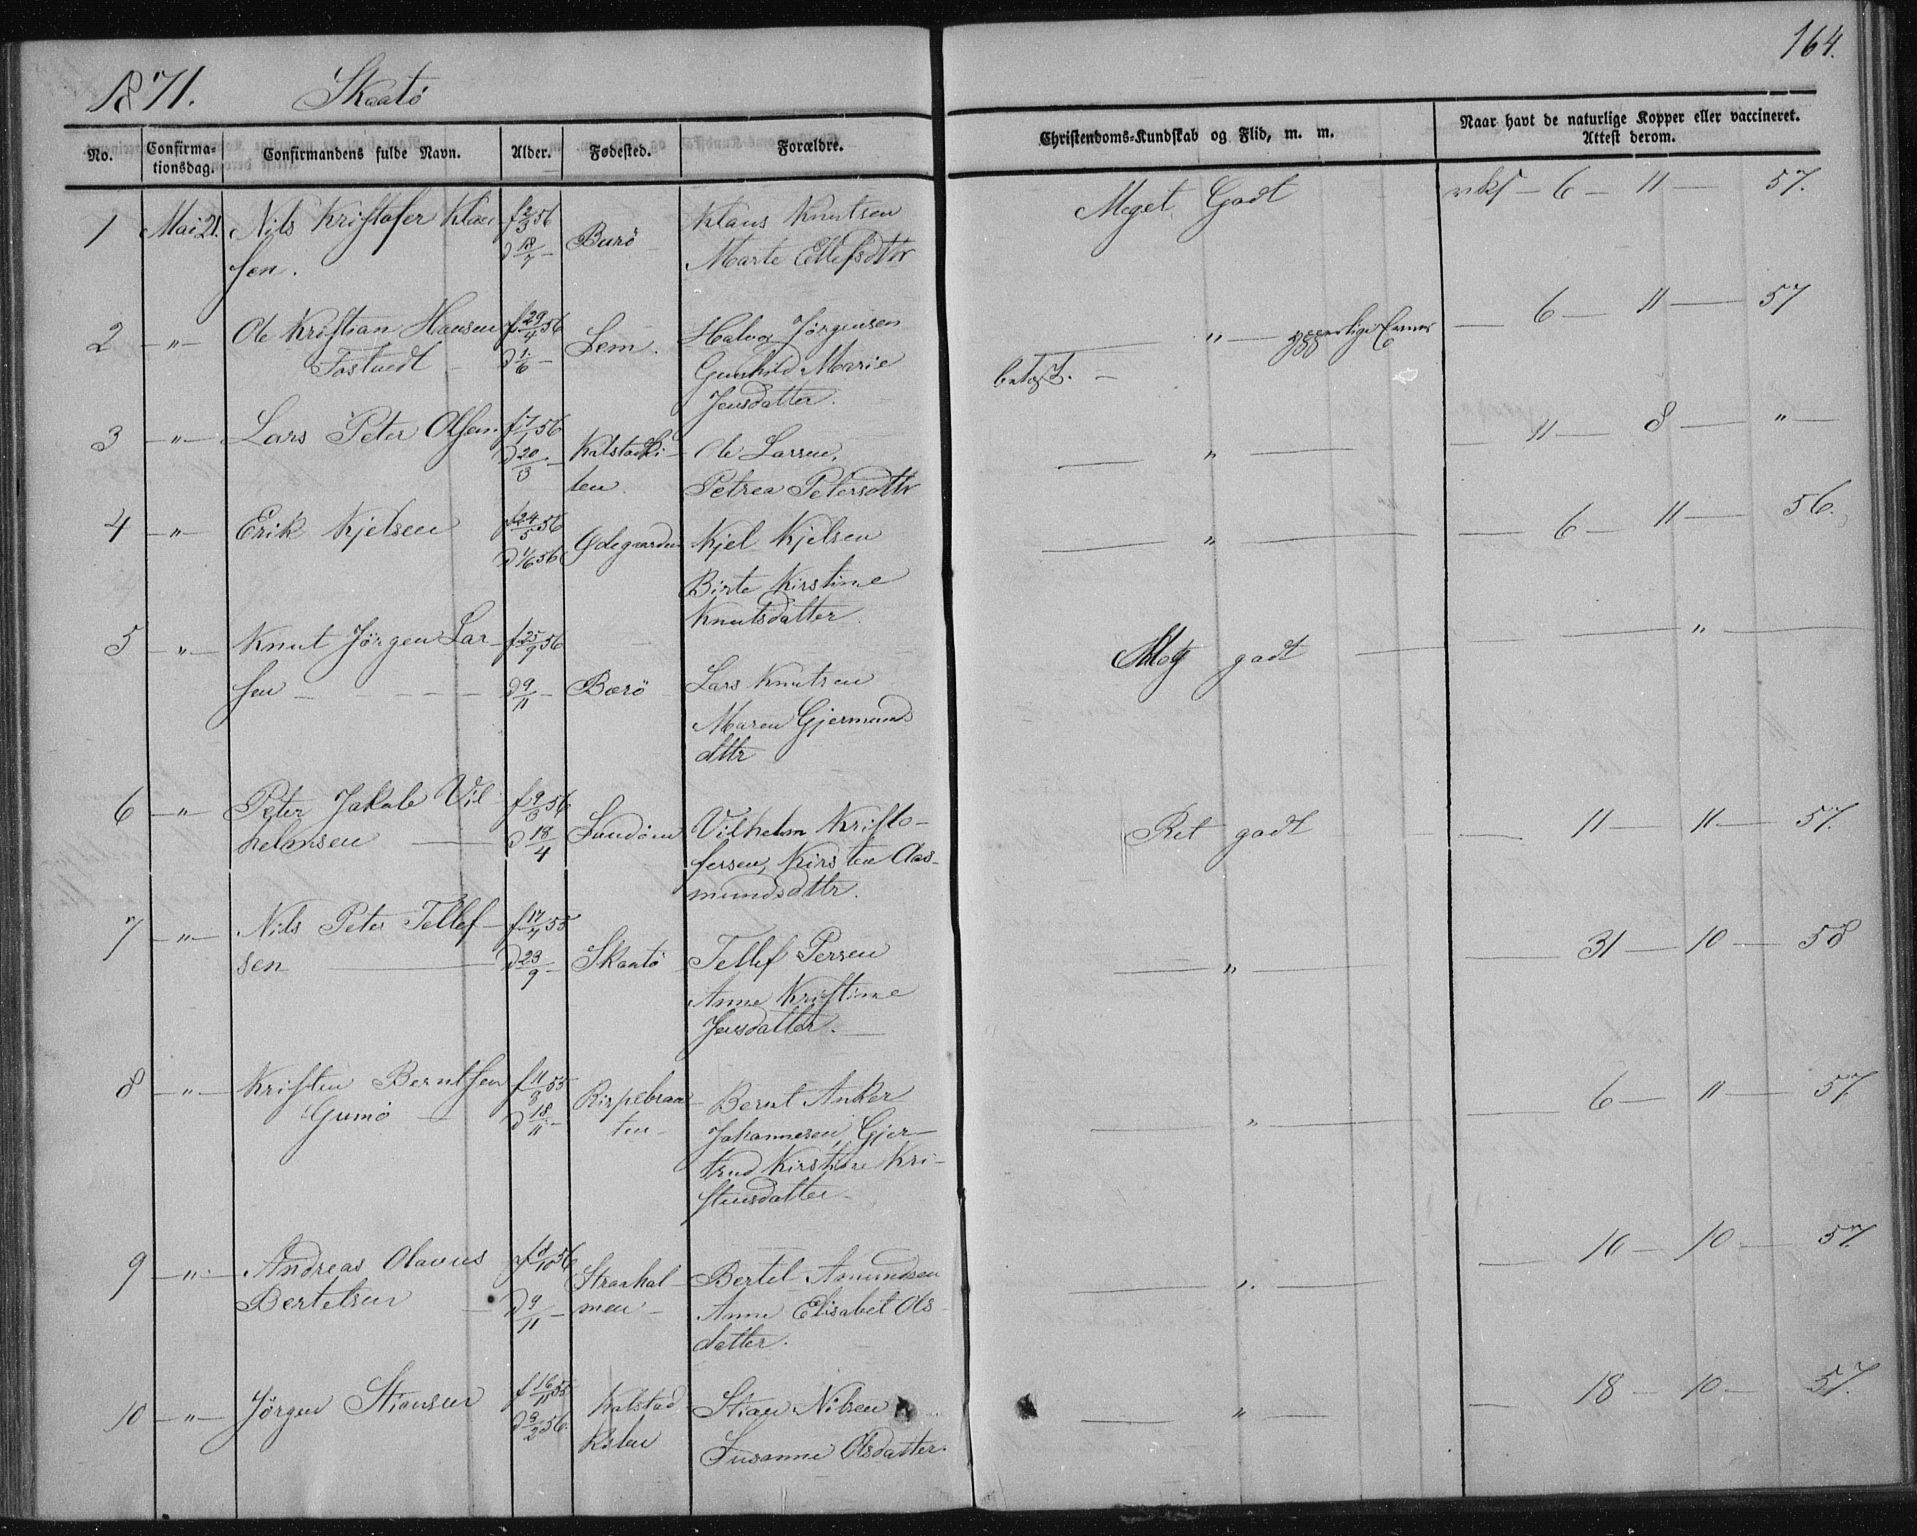 164.
1871. Skaatö
No. Confirma-tionsdag. Confirmandens fulde Navn. Alder. Fødested. Forældre. Christendoms-Kundskab og Flid, m. m. Naar havt de naturlige Kopper eller vaccineret. Attest derom.
1 Mai 21. Nils Kristofer Klau- f 2/3 56 Klaus Knutsen Meget Godt 6 — 11 — 57.
sen. d 13/7 — Burö — Marte Ellefsdttr
2 —"— Ole Kristian Hansen f 29/4 56 Lem. Halvor Jörgensen —"— 6 — 11 — 57
Tostvedt — d 1/6 — Gunhild Marie
Jensdatter.
3 —"— Lars Peter Olsen f 7/1 56 — " — 11 — 8 — " —
d 20/3 — Kalstadki- Ole Larsen,
len. Petrea Petersdttr
4 —"— Erik Kjelsen f 24/5 56 Ödegaarden Kjel Kjelsen — " — 6 — 11 — 56.
d 1/6 56 Birte Kirstine
Knutsdatter.
5 —"— Knut Jörgen Lar- f 25/9 56 godt — " —
sen — d 9/11 — Bærö Lars Knutsen
Maren Gjermunds
dttr
6 —"— Peter Jakob Vil- f 9/3 56 Vilhelm Kristo- Ret godt — 11 — 11 — 57.
helmsen — d 18/4 Sundöen fersen, Kirsten Aas-
mundsdttr.
7 —"— Nils Peter Tellef- f 17/7 55 — " — 31 — 10 — 58
sen — d 23/9 — Skaatö Tellef Persen
Anne Kristine
Jensdatter. —
8 —"— Kristen Berntsen f 11/8 55 Rirpebraa- Bernt Anker — " — 6 — 11 — 57
Gumö — d 18/11 — ten — Johannesen, Gjer-
trud Kirstine Kri-
stensdatter —
9 —"— Andreas Olavus f 8/10 56 Straahol- Bertel Amundsen — " — 16 — 10 — 57.
Bertelsen — d 9/11 — men — Anne Elisabet Ols-
datter.
10 —"— Jörgen Stiansen f 16/11 55 Kalstad- Stian Nilsen — " — 18 — 10 — 57.
d 3/2 56. kilen Susanne Olsdatter.